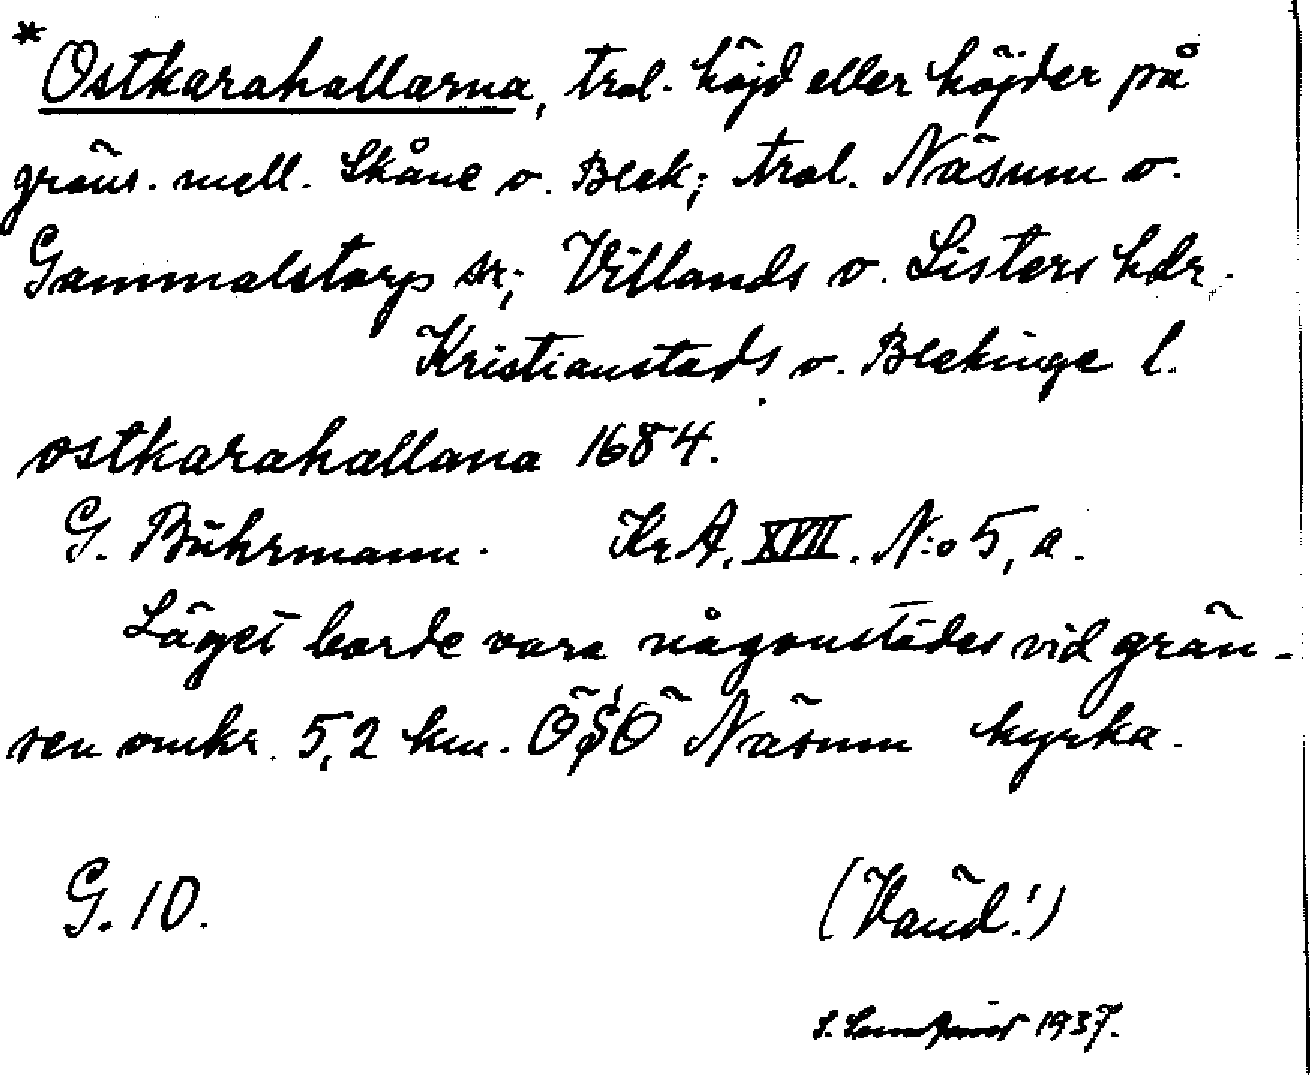 *Ostkarahallarna, trol. höjd eller höjder på
gräns. mell. Skåne o. Blek; trol. Näsum o.
Gammalstorps sr; Villands o. Listers hdr.
Kristianstads o. Blekinge l.
ostkarahallana 1684.
G. Bührmann. Kr.A. XVII. N:o 5, a.
Läget borde vara någonstädes vid grän-
sen omkr. 5,2 km. ÖSÖ Näsum kyrka.
G. 10. (Vänd!)
1937.